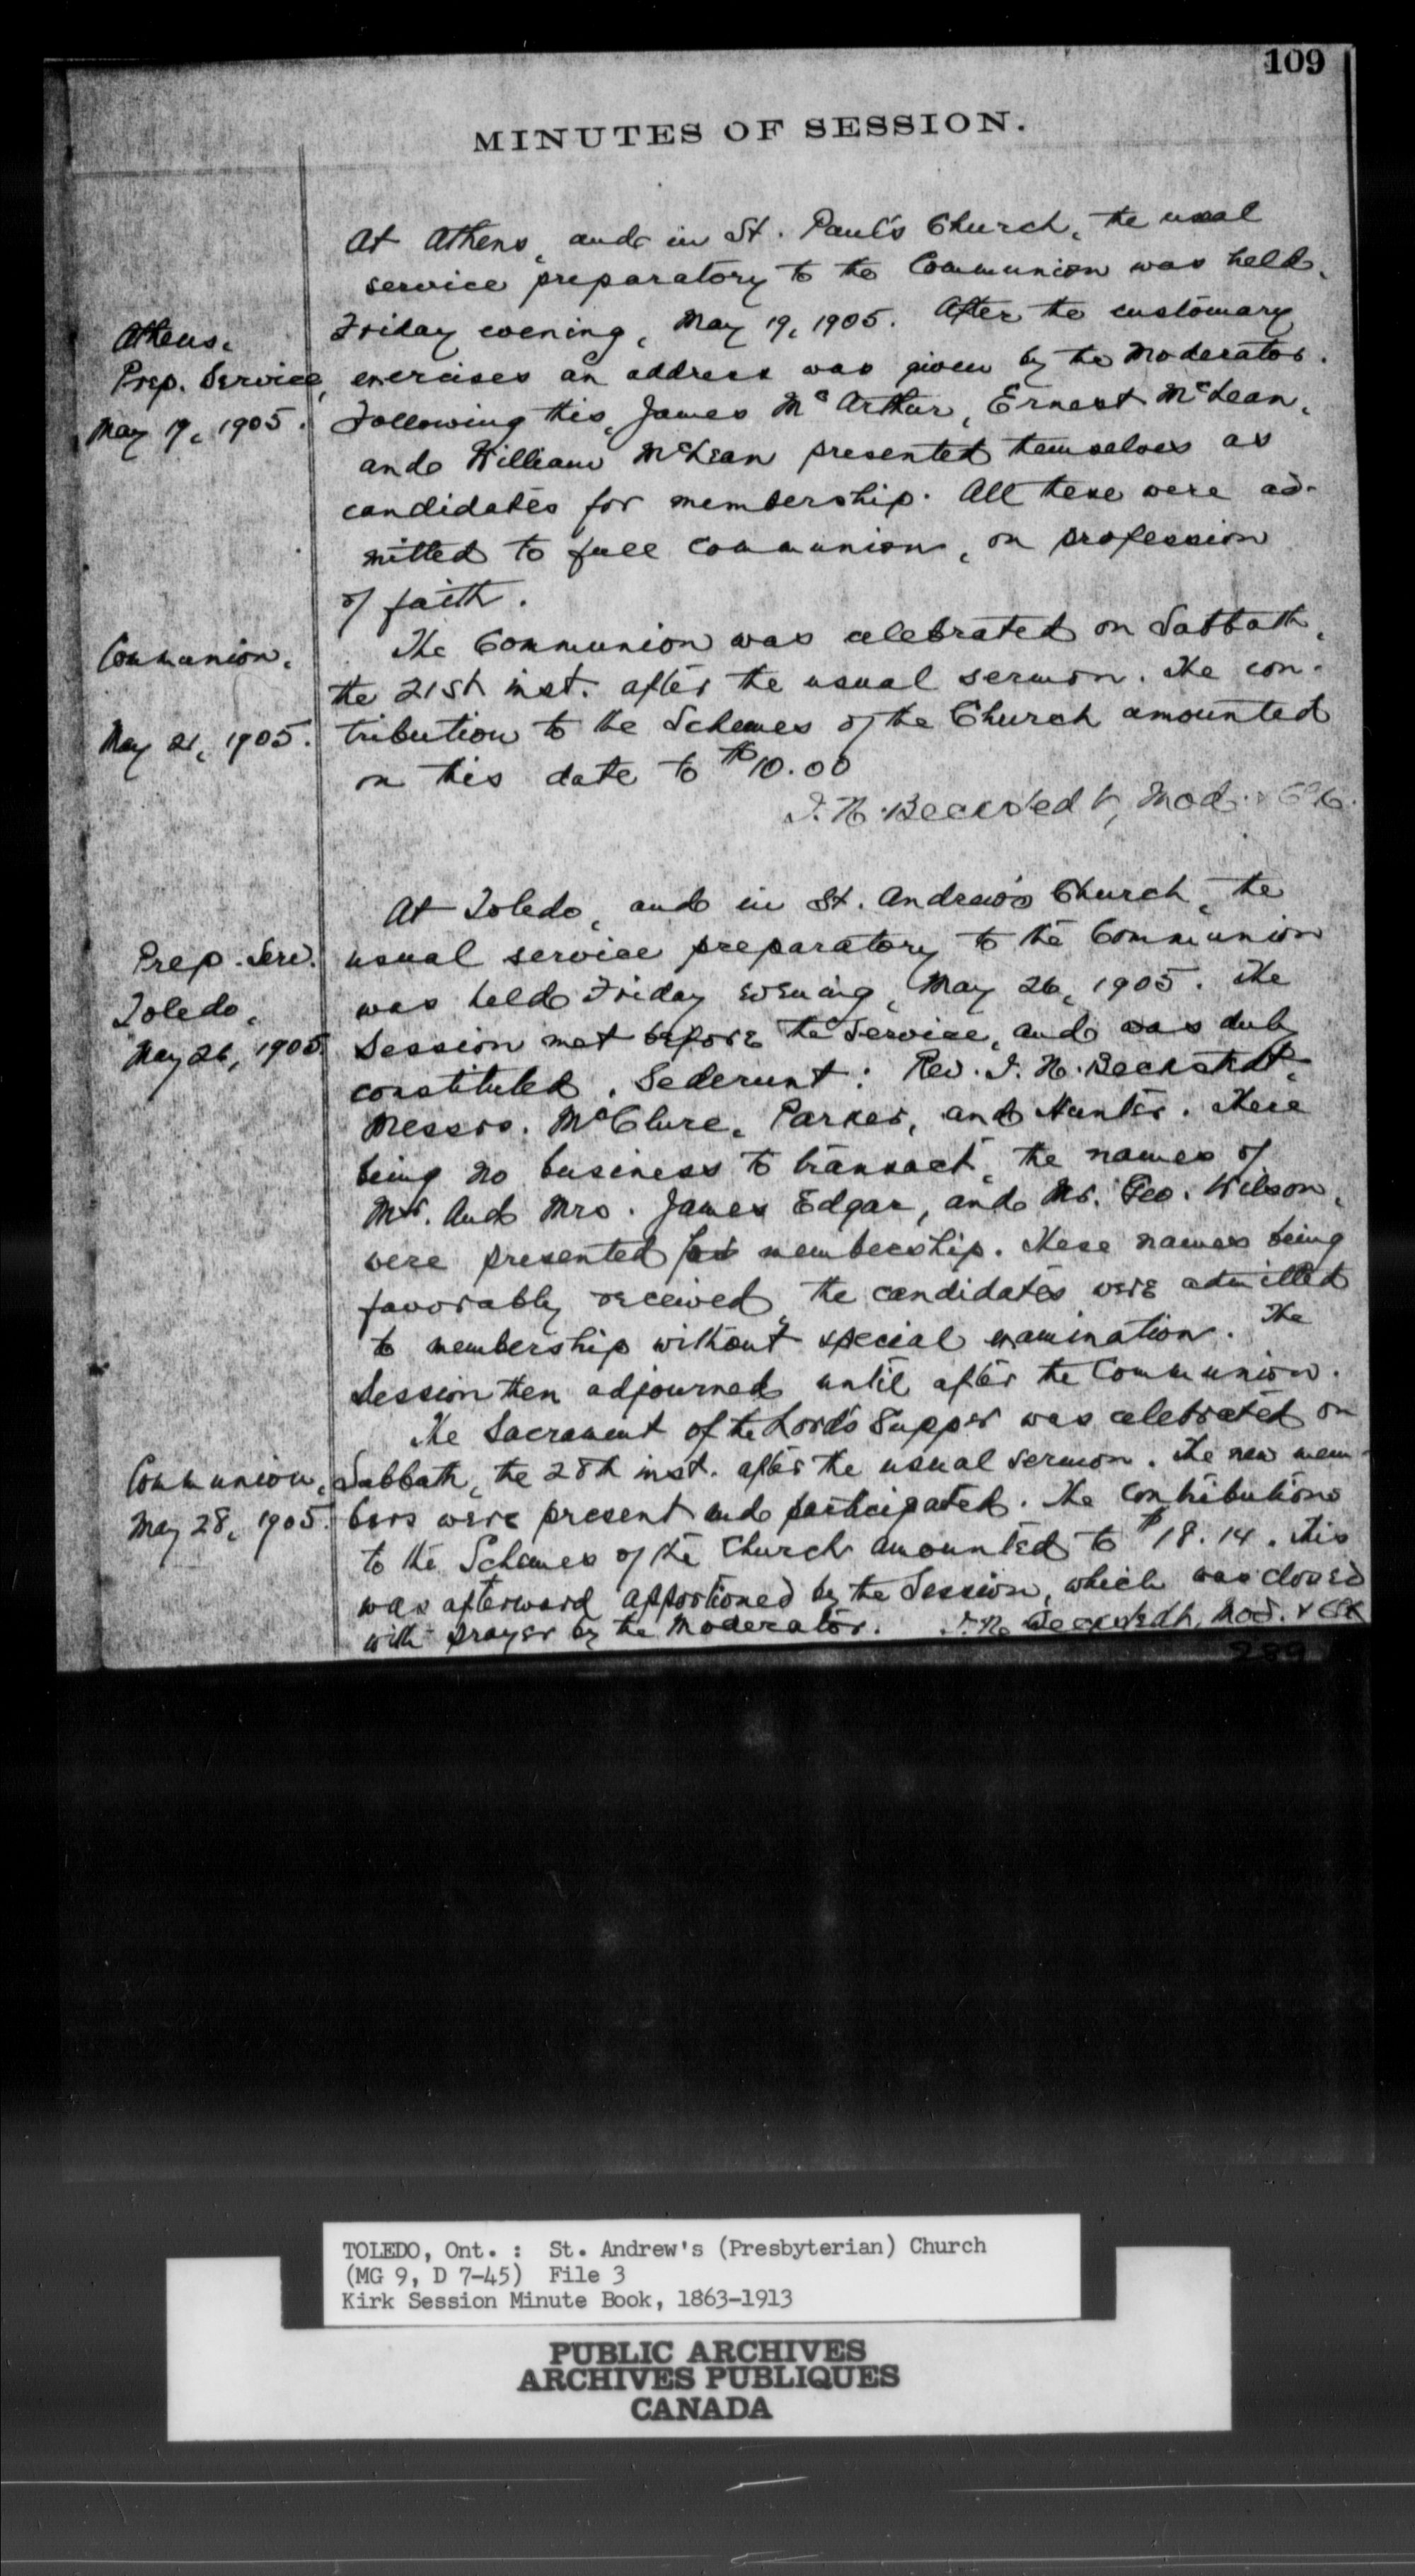 109
MINUTES OF SESSION.
At Athens, and in St. Paul's Church, the usual
service preparatory to the Communion was held,
Athens,
Friday evening, May 19, 1905. After the customary
Prep. Service,
exercises an address was given by the Moderator.
May 19, 1905.
Following this, James McArthur, Ernest McLean,
and William McLean presented themselves as
candidates for membership. All these were ad-
mitted to full communion, on profession
of faith.
Communion,
The Communion was celebrated on Sabbath,
the 21st inst. after the usual sermon. The con-
May 21, 1905.
tribution to the Schemes of the Church amounted
on this date to $10.00
I. N. Beckstedt, Mod. & Clk.
At Toledo, and in St. Andrew's Church, the
Prep. Serv.
usual service preparatory to the Communion
Toledo,
was held Friday evening, May 26, 1905. The
May 26, 1905.
Session met before the service, and was duly
constituted. Sederunt: Rev. I. N. Beckstedt,
Messrs. McClure, Parker, and Hunter. There
being no business to transact, the names of
Mr. and Mrs. James Edgar, and Mr. Geo. Wilson,
were presented for membership. These names being
favorably received, the candidates were admitted
to membership without special examination. The
Session then adjourned until after the Communion.
The Sacrament of the Lord's Supper was celebrated on
Communion,
Sabbath, the 28th inst. after the usual sermon. The new mem-
May 28, 1905.
bers were present and participated. The contributions
to the Schemes of the Church amounted to $18.14. This
was afterward apportioned by the Session, which was closed
with prayer by the Moderator. I. N. Beckstedt, Mod. & Clk
289
TOLEDO, Ont. : St. Andrew's (Presbyterian) Church
(MG 9, D 7-45) File 3
Kirk Session Minute Book, 1863-1913
PUBLIC ARCHIVES
ARCHIVES PUBLIQUES
CANADA